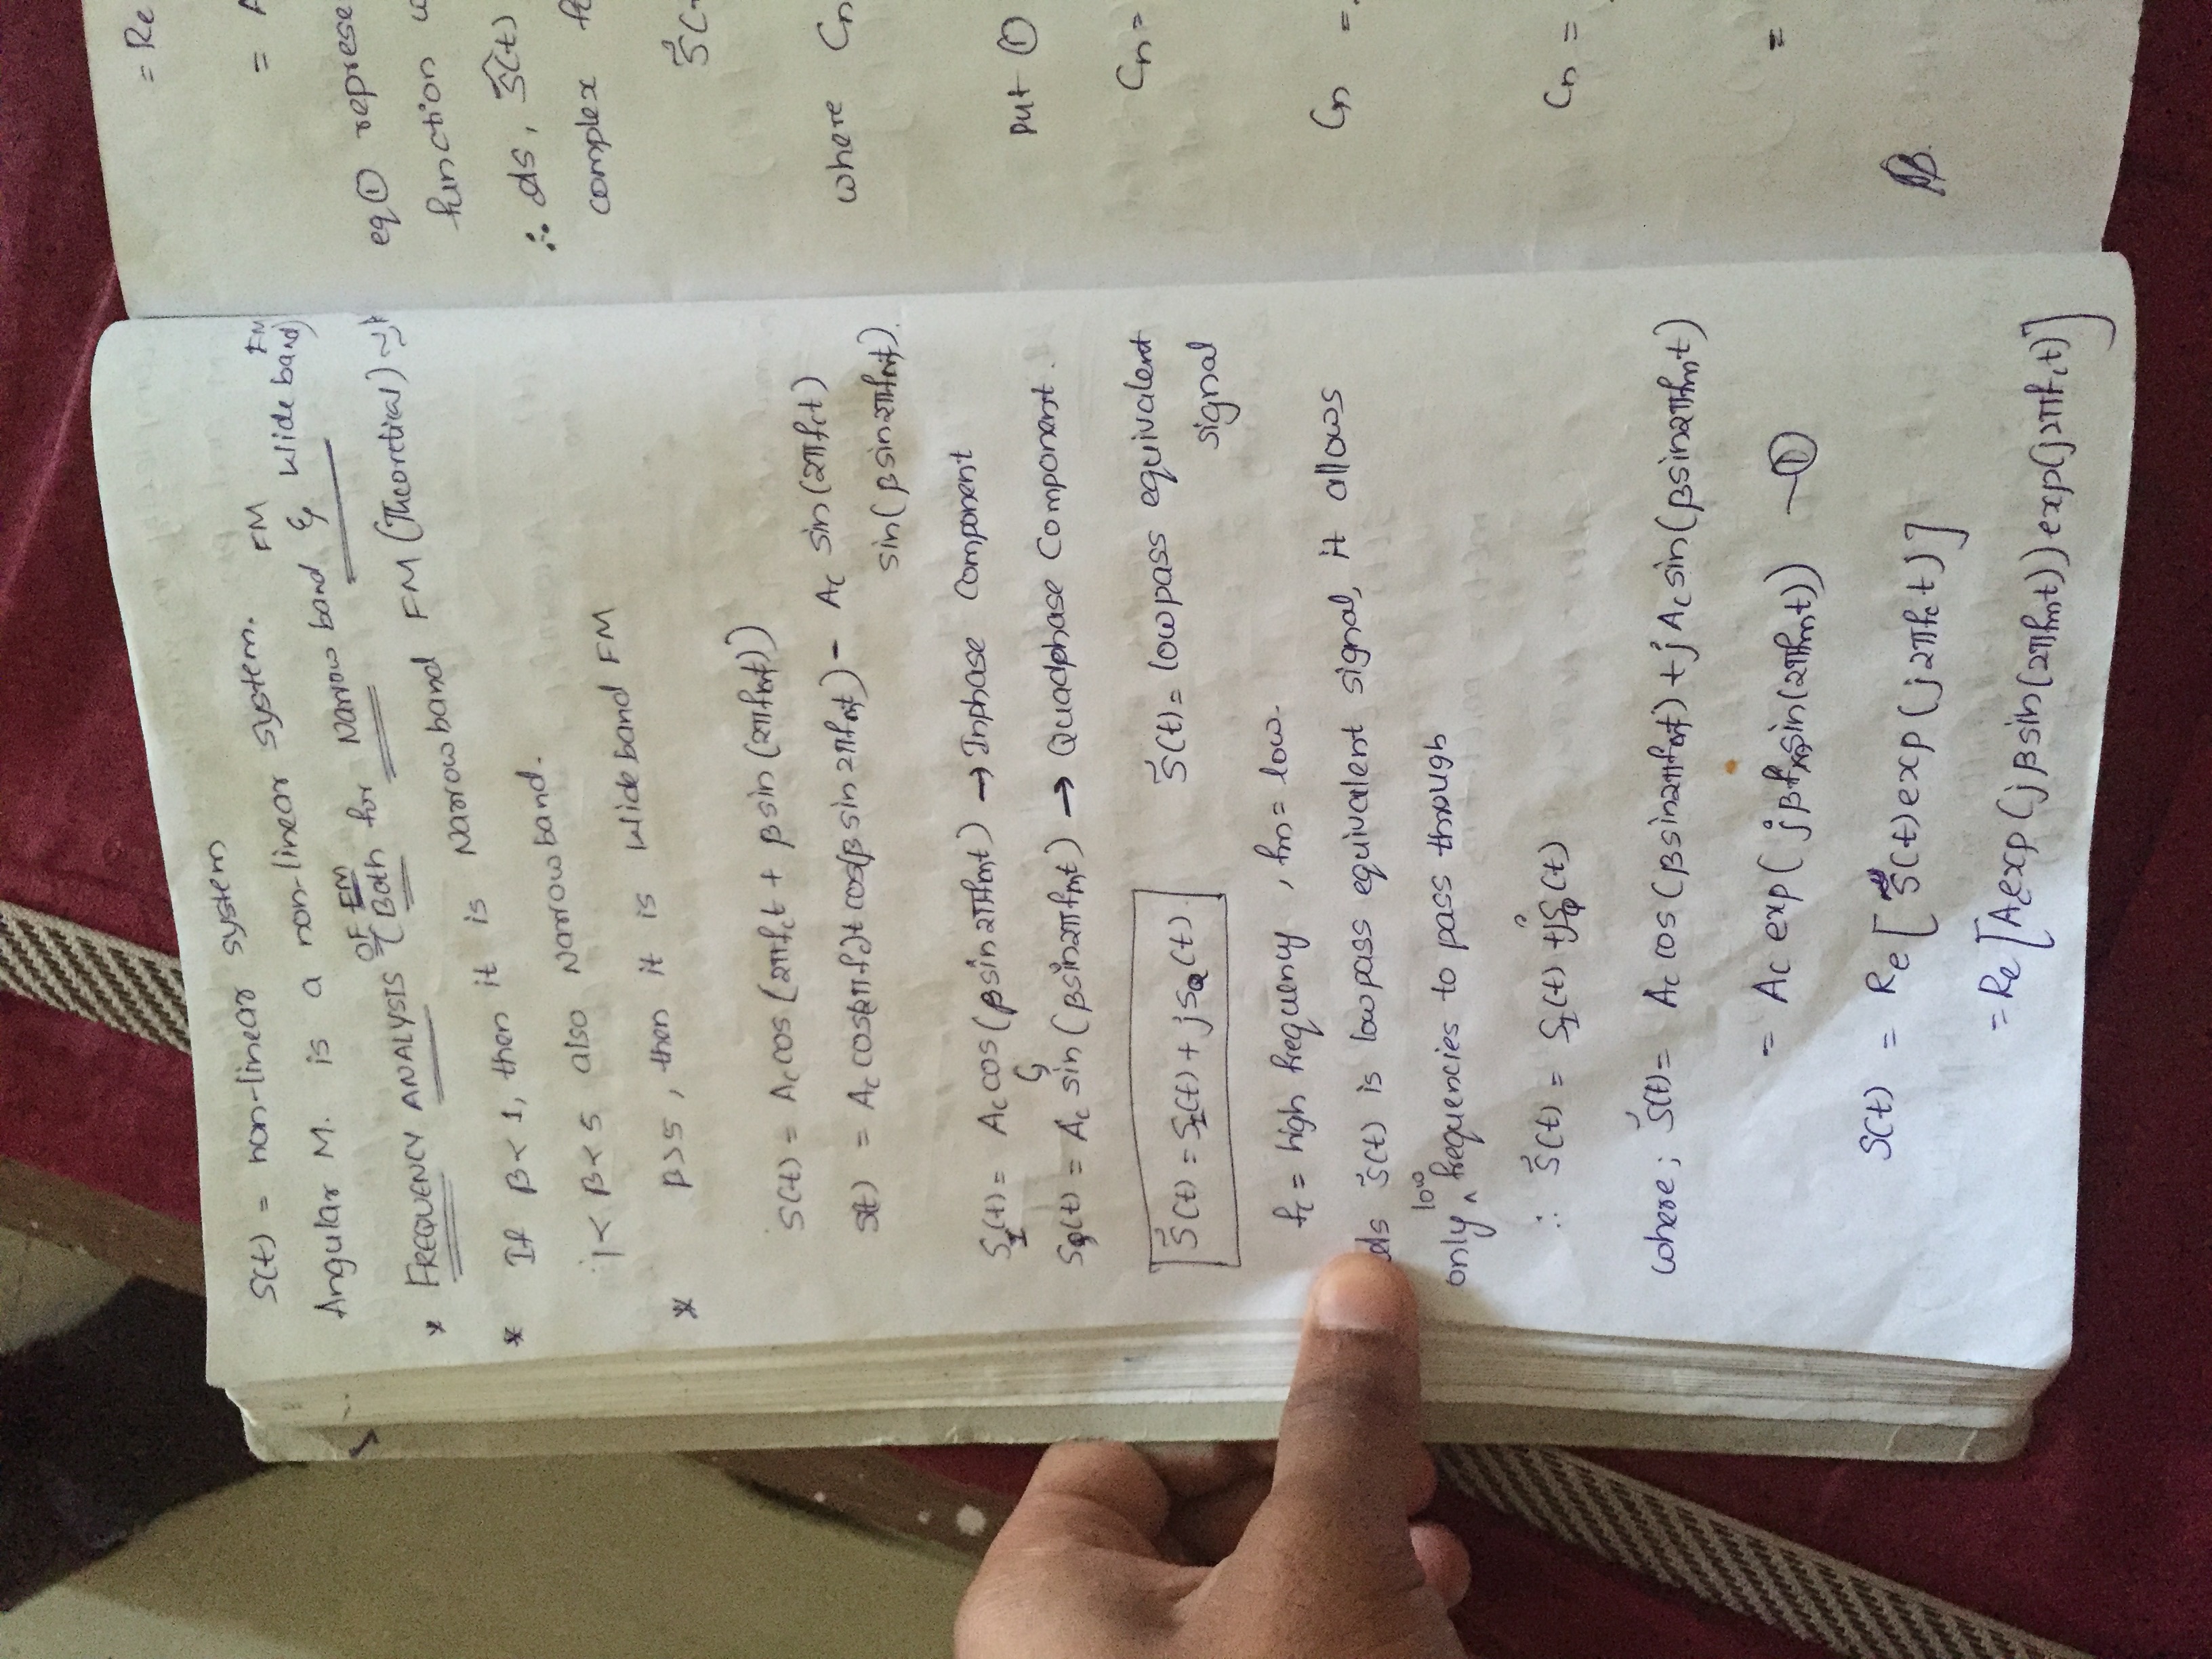 S(t) = non-linear system
Angular M. is a non-linear system.
* FREQUENCY ANALYSIS OF FM (Both for Narrow band FM & Wide band FM)
* If β < 1, then it is Narrowband FM (Theoretical)
1 < β < 5 also Narrowband.
* β > 5, then it is Wideband FM
S(t) = Ac cos (2πfct + β sin (2πfmt))
s(t) = Ac cos(2πfc)t cos(β sin 2πfmt) - Ac sin(2πfct)
sin(β sin2πfmt).
SI(t) = Ac cos(β sin2πfmt) → Inphase Component
SQ(t) = Ac sin(β sin2πfmt) → Quadphase Component.
s̃(t) = SI(t) + jSQ(t)
s̃(t) = lowpass equivalent
signal
fc = high frequency, fm = low.
ds s̃(t) is lowpass equivalent signal, it allows
only low frequencies to pass through
∴ s̃(t) = SI(t) + jSQ(t)
where; s̃(t) = Ac cos(β sin2πfmt) + j Ac sin(β sin2πfmt)
= Ac exp(jβ sin(2πfmt)) —①
S(t) = Re [s̃(t) exp(j2πfct)]
= Re [Ac exp(jβ sin(2πfmt)) exp(j2πfct)]
= Re
=
eq ① represe
function
∴ ds, ŝ(t)
complex
s̃(
where Cn
put ①
Cn =
Cn =
Cn =
=